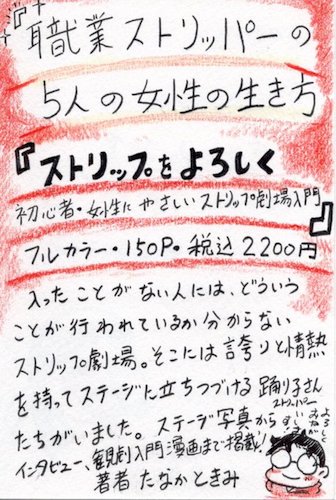 職業ストリッパーの
5人の女性の生き方
『ストリップをよろしく
初心者・女性にやさしいストリップ劇場入門』
フルカラー・150P・税込2200円
入ったことがない人には、どういう
ことが行われているか分からない
ストリップ劇場。そこには誇りと情熱
を持ってステージに立ちつづける踊り子さん
ストリッパー
たちがいました。ステージ写真から
インタビュー、観劇入門漫画まで掲載!
著者 たなかときみ